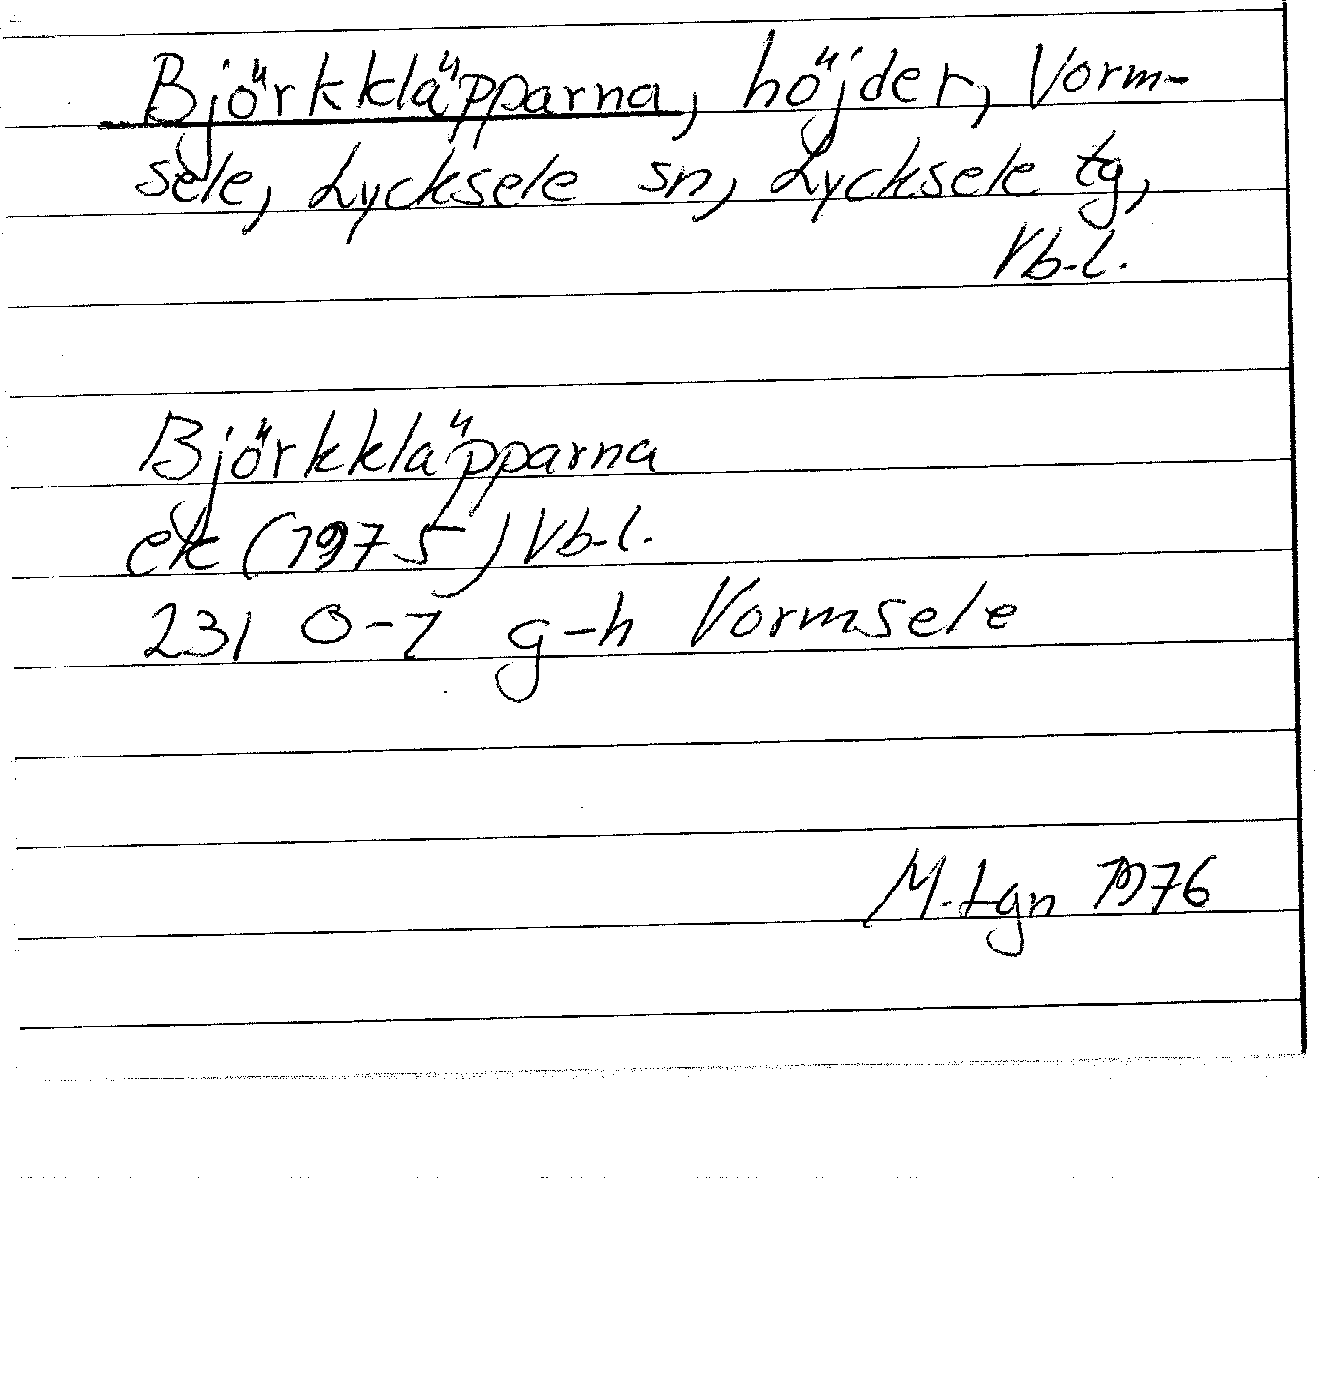 Björkkläpparna, höjder, Vorm-
sele, Lycksele sn, Lycksele tg,
Vb-l.
Björkkläpparna
ek (1975) Vb-l.
23I 0-1 g-h Vormsele
M. Lgn 1976